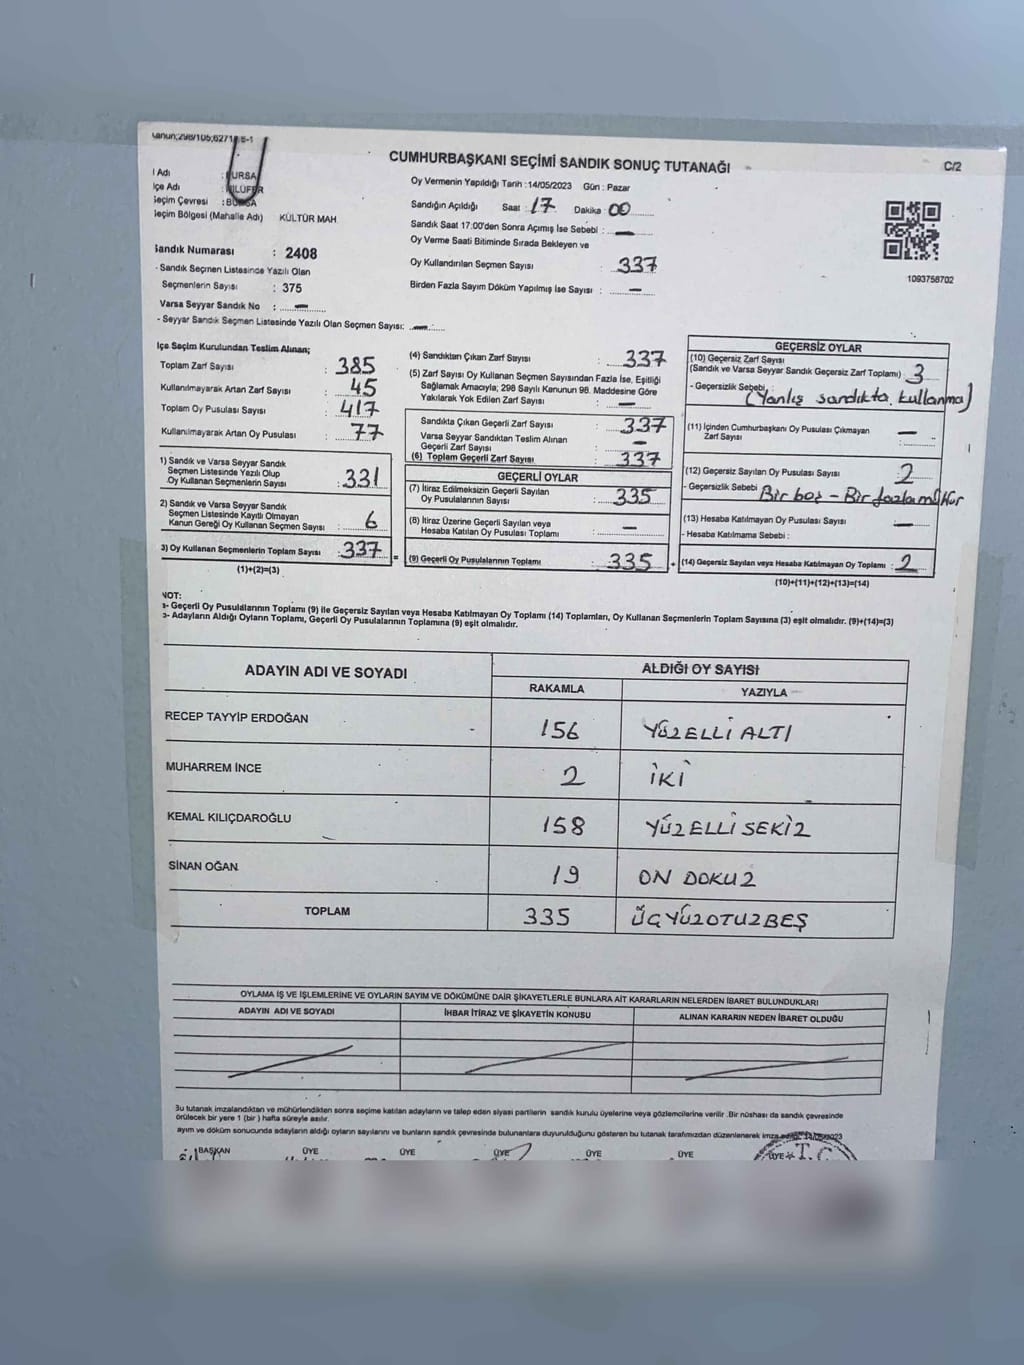 CUMHURBAŞKANI SEÇİMİ SANDIK SONUÇ TUTANAĞI
C/2
Adı : BURSA
İçe Adı : NİLÜFER
Seçim Çevresi : BURSA
Seçim Bölgesi (Mahalle Adı) KÜLTÜR MAH.
Sandık Numarası : 2408
- Sandık Seçmen Listesinde Yazılı Olan
Seçmenlerin Sayısı : 375
Varsa Seyyar Sandık No : —
- Seyyar Sandık Seçmen Listesinde Yazılı Olan Seçmen Sayısı: —
Oy Vermenin Yapıldığı Tarih : 14/05/2023 Gün : Pazar
Sandığın Açıldığı Saat : 17 Dakika : 00
Sandık Saat 17:00'den Sonra Açımış İse Sebebi : —
Oy Verme Saati Bitiminde Sırada Bekleyen ve
Oy Kullandırılan Seçmen Sayısı : 337
Birden Fazla Sayım Döküm Yapılmış İse Sayısı : —
1093758702
İlçe Seçim Kurulundan Teslim Alınan;
Toplam Zarf Sayısı : 385
Kullanılmayarak Artan Zarf Sayısı : 45
Toplam Oy Pusulası Sayısı : 417
Kullanılmayarak Artan Oy Pusulası : 77
1) Sandık ve Varsa Seyyar Sandık
Seçmen Listesinde Yazılı Olup
Oy Kullanan Seçmenlerin Sayısı : 331
2) Sandık ve Varsa Seyyar Sandık
Seçmen Listesinde Kayıtlı Olmayan
Kanun Gereği Oy Kullanan Seçmen Sayısı : 6
3) Oy Kullanan Seçmenlerin Toplam Sayısı : 337 =
(1)+(2)=(3)
(4) Sandıktan Çıkan Zarf Sayısı : 337
(5) Zarf Sayısı Oy Kullanan Seçmen Sayısından Fazla İse, Eşitliği
Sağlamak Amacıyla; 298 Sayılı Kanunun 98. Maddesine Göre
Yakılarak Yok Edilen Zarf Sayısı : —
Sandıkta Çıkan Geçerli Zarf Sayısı : 337
Varsa Seyyar Sandıktan Teslim Alınan
Geçerli Zarf Sayısı : —
(6) Toplam Geçerli Zarf Sayısı : 337
GEÇERLİ OYLAR
(7) İtiraz Edilmeksizin Geçerli Sayılan
Oy Pusulalarının Sayısı : 335
(8) İtiraz Üzerine Geçerli Sayılan veya
Hesaba Katılan Oy Pusulası Toplamı : —
(9) Geçerli Oy Pusulalarının Toplamı : 335 +
GEÇERSİZ OYLAR
(10) Geçersiz Zarf Sayısı
(Sandık ve Varsa Seyyar Sandık Geçersiz Zarf Toplamı) : 3
- Geçersizlik Sebebi : (Yanlış sandıkta kullanma)
(11) İçinden Cumhurbaşkanı Oy Pusulası Çıkmayan
Zarf Sayısı : —
(12) Geçersiz Sayılan Oy Pusulası Sayısı : 2
- Geçersizlik Sebebi : Bir boş - Bir fazla mühür
(13) Hesaba Katılmayan Oy Pusulası Sayısı : —
- Hesaba Katılmama Sebebi :
(14) Geçersiz Sayılan veya Hesaba Katılmayan Oy Toplamı : 2
(10)+(11)+(12)+(13)=(14)
NOT:
- Geçerli Oy Pusulalarının Toplamı (9) ile Geçersiz Sayılan veya Hesaba Katılmayan Oy Toplamı (14) Toplamları, Oy Kullanan Seçmenlerin Toplam Sayısına (3) eşit olmalıdır. (9)+(14)=(3)
- Adayların Aldığı Oyların Toplamı, Geçerli Oy Pusulalarının Toplamına (9) eşit olmalıdır.
ADAYIN ADI VE SOYADI ALDIĞI OY SAYISI
RAKAMLA YAZIYLA
RECEP TAYYİP ERDOĞAN 156 YÜZELLİ ALTI
MUHARREM İNCE 2 İKİ
KEMAL KILIÇDAROĞLU 158 YÜZELLİ SEKİZ
SİNAN OĞAN 19 ON DOKUZ
TOPLAM 335 ÜÇYÜZOTUZBEŞ
OYLAMA İŞ VE İŞLEMLERİNE VE OYLARIN SAYIM VE DÖKÜMÜNE DAİR ŞİKAYETLERLE BUNLARA AİT KARARLARIN NELERDEN İBARET BULUNDUKLARI
ADAYIN ADI VE SOYADI İHBAR İTİRAZ VE ŞİKAYETİN KONUSU ALINAN KARARIN NEDEN İBARET OLDUĞU
Bu tutanak imzalandıktan ve mühürlendikten sonra seçime katılan adayların ve talep eden siyasi partilerin sandık kurulu üyelerine veya gözlemcilerine verilir. Bir nüshası da sandık çevresinde
görülecek bir yere 1 (bir) hafta süreyle asılır.
ayım ve döküm sonucunda adayların aldığı oyların sayılarını ve bunların sandık çevresinde bulunanlara duyurulduğunu gösteren bu tutanak tarafımızdan düzenlenerek imza
BAŞKAN ÜYE ÜYE ÜYE ÜYE ÜYE ÜYE
T.C.